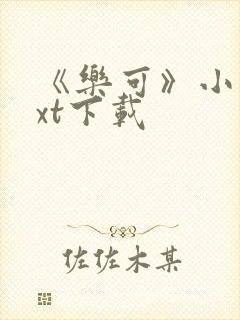 《樂可》小
xt下載
佐佐木某